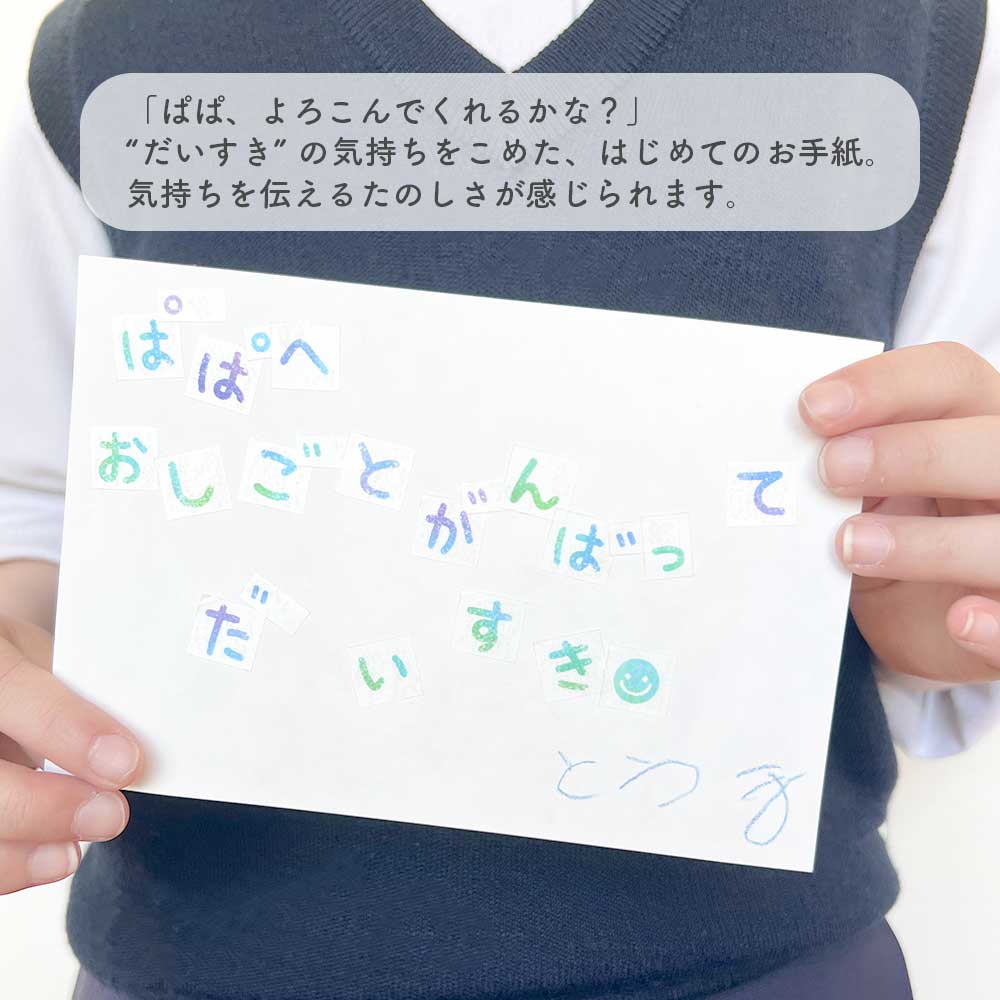 「ぱぱ、よろこんでくれるかな？」
“だいすき” の気持ちをこめた、はじめてのお手紙。
気持ちを伝えるたのしさが感じられます。
ぱぱへ
おしごとがんばって
だいすき